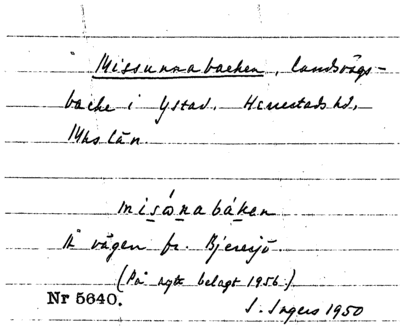 Missunnabacken, landsvägs-
backe i Ystad, Herrestads hd,
Mhs län.
misὼnabáken
Å vägen fr. Bjeresjö
(På nytt belagt 1956.)
Nr 5640.
I. Ingers 1950